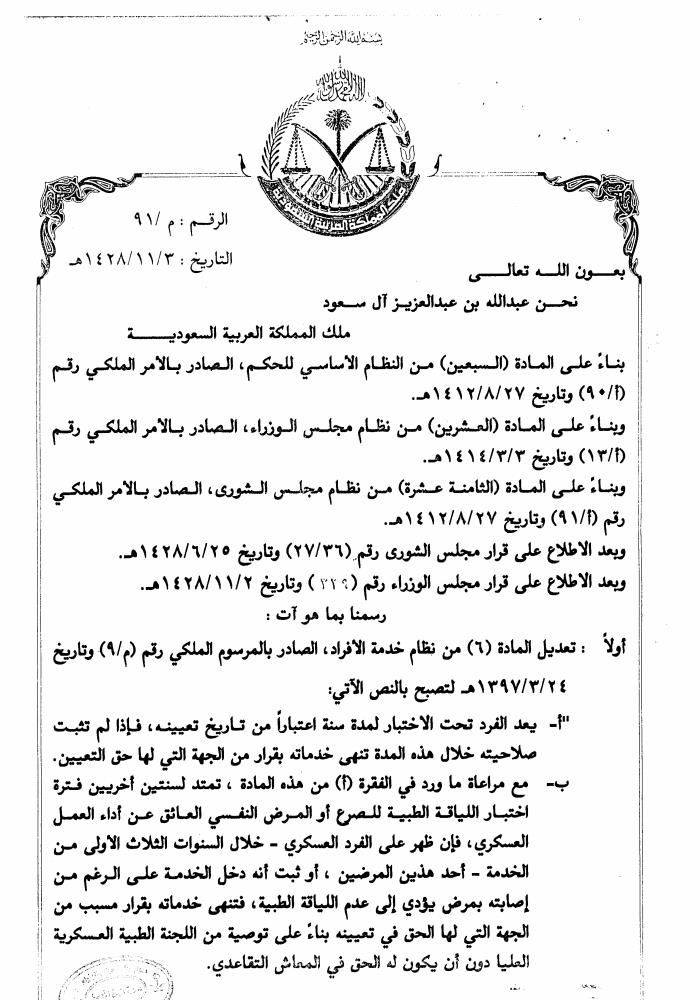 بسم الله الرحمن الرحيم
لا إله إلا الله محمد رسول الله
المملكة العربية السعودية
الرقم : م /٩١
التاريخ : ١٤٢٨/١١/٣هـ
بعون الله تعالى
نحن عبدالله بن عبدالعزيز آل سعود
ملك المملكة العربية السعودية
بناءً على المادة (السبعين) من النظام الأساسي للحكم، الصادر بالأمر الملكي رقم
(أ/٩٠) وتاريخ ١٤١٢/٨/٢٧هـ.
وبناءً على المادة (العشرين) من نظام مجلس الوزراء، الصادر بالأمر الملكي رقم
(أ/١٣) وتاريخ ١٤١٤/٣/٣هـ.
وبناءً على المادة (الثامنة عشرة) من نظام مجلس الشورى، الصادر بالأمر الملكي
رقم (أ/٩١) وتاريخ ١٤١٢/٨/٢٧هـ.
وبعد الاطلاع على قرار مجلس الشورى رقم (٢٧/٣٦) وتاريخ ١٤٢٨/٦/٢٥هـ.
وبعد الاطلاع على قرار مجلس الوزراء رقم (٣٣٩) وتاريخ ١٤٢٨/١١/٢هـ.
رسمنا بما هو آت :
أولاً : تعديل المادة (٦) من نظام خدمة الأفراد، الصادر بالمرسوم الملكي رقم (م/٩) وتاريخ
١٣٩٧/٣/٢٤هـ لتصبح بالنص الآتي:
"أ- يعد الفرد تحت الاختبار لمدة سنة اعتباراً من تاريخ تعيينه، فإذا لم تثبت
صلاحيته خلال هذه المدة تنهى خدماته بقرار من الجهة التي لها حق التعيين.
ب- مع مراعاة ما ورد في الفقرة (أ) من هذه المادة ، تمتد لسنتين أخريين فترة
اختبار اللياقة الطبية للصرع أو المرض النفسي العائق عن أداء العمل
العسكري، فإن ظهر على الفرد العسكري - خلال السنوات الثلاث الأولى من
الخدمة - أحد هذين المرضين ، أو ثبت أنه دخل الخدمة على الرغم من
إصابته بمرض يؤدي إلى عدم اللياقة الطبية، فتنهى خدماته بقرار مسبب من
الجهة التي لها الحق في تعيينه بناءً على توصية من اللجنة الطبية العسكرية
العليا دون أن يكون له الحق في المعاش التقاعدي.